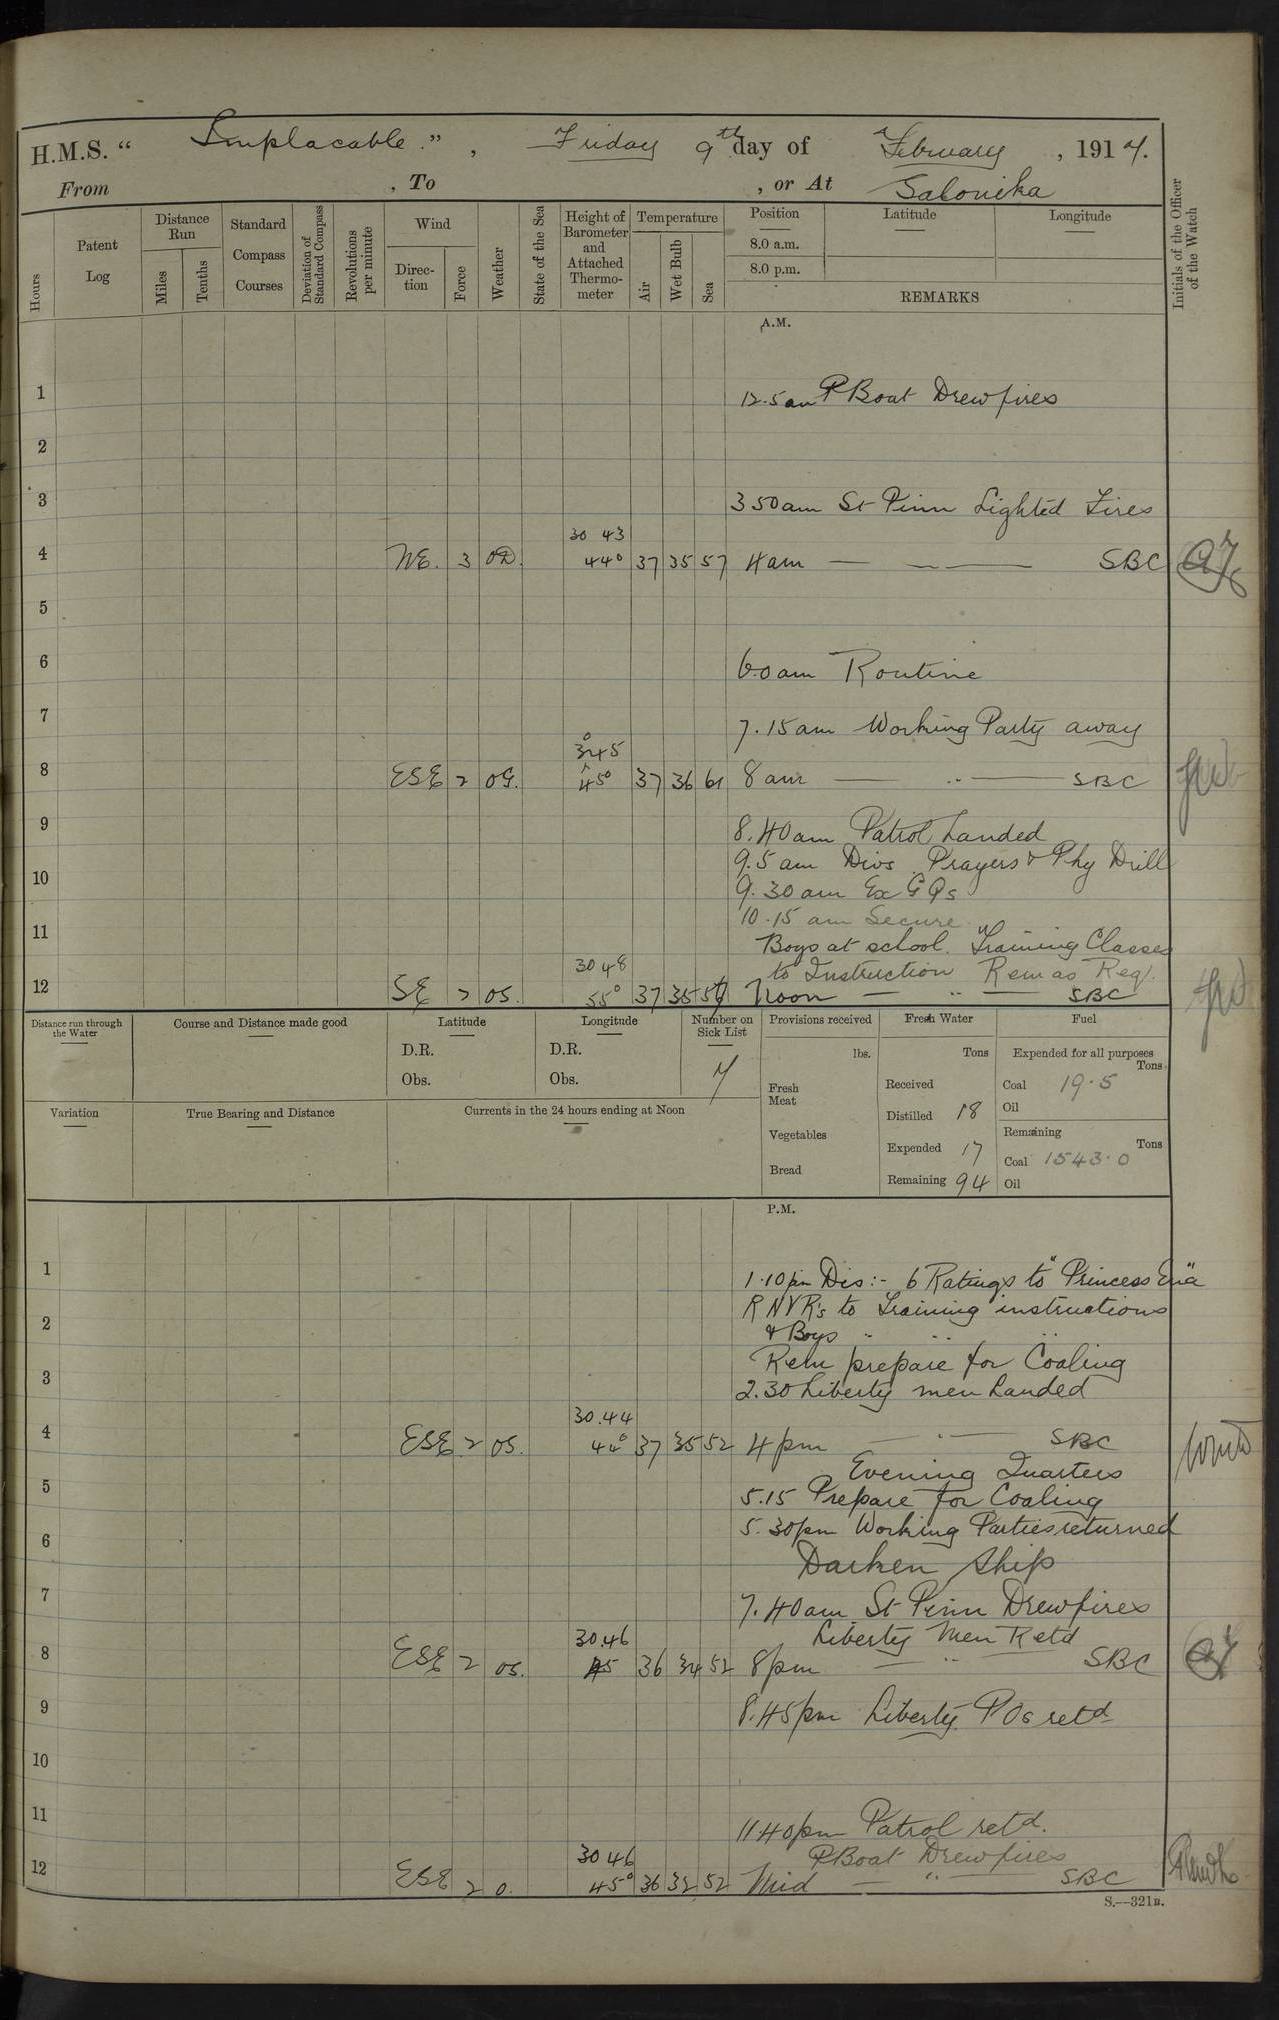 H.M.S. “ Implacable. ” , Friday 9th day of February , 1917.
From , To , or At Salonika
Hours
Patent Log
Distance Run
Miles
Tenths
Standard Compass Courses
Deviation of Standard Compass
Revolutions per minute
Wind
Direction
Force
Weather
State of the Sea
Height of Barometer and Attached Thermometer
Temperature
Air
Wet Bulb
Sea
Position
8.0 a.m.
8.0 p.m.
Latitude
Longitude
REMARKS
Initials of the Officer of the Watch
A.M.
1 12.5am P Boat Drew fires
2
3 3 50am St Pinn Lighted Fires
30 43
4 NE. 3 OD. 44° 37 35 57 4am — — — SBC
5
6 6.0am Routine
7 7.15am Working Party away
3045
8 ESE 2 OG. 45° 37 36 61 8am — " — SBC
9 8.40am Patrol Landed
9.5 am Divs Prayers & Phy Drill
10 9.30am Ex G Qs
10.15 am Secure
11 Boys at school. Training Classes
30 48 to Instruction Rem as Req.
12 SE 2 OS. 55° 37 35 56 Noon — " — SBC
Distance run through the Water
Course and Distance made good
Latitude
D.R.
Obs.
Longitude
D.R.
Obs.
Number on Sick List
7
Provisions received
lbs.
Fresh Meat
Vegetables
Bread
Fresh Water
Tons
Received
Distilled 18
Expended 17
Remaining 94
Fuel
Expended for all purposes
Tons
Coal 19.5
Oil
Remaining
Tons
Coal 1543.0
Oil
Variation
True Bearing and Distance
Currents in the 24 hours ending at Noon
P.M.
1 1.10pm Dis:- 6 Ratings to "Princess Ena"
RNVR's to Training instructions
2 & Boys " " "
Rem prepare for Coaling
3 2.30 Liberty men Landed
30.44
4 ESE 2 OS. 44° 37 35 52 4pm — " — SBC
Evening Quarters
5 5.15 Prepare for Coaling
5.30pm Working Parties returned
6 Darken Ship
7 7.40am St Pinn Drew fires
30.46 Liberty Men Retd
8 ESE 2 OS. 45 36 34 52 8pm — " — SBC
9 8.45pm Liberty POs retd
10
11 11.40pm Patrol retd.
30 46 P Boat Drew fires
12 ESE 2 O. 45° 36 32 52 Mid — " — SBC
S.—321B.